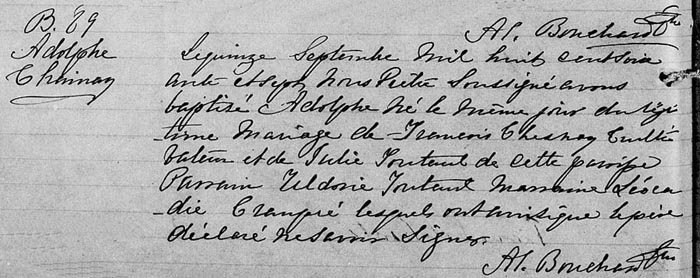 Al. Bouchard Ptre
B. 89
Adolphe
Chainay
Le quinze Septembre mil huit cent soix
ante et sept Nous Prêtre Soussigné avons
baptisé Adolphe né le même jour du légi
time Mariage de François Chesnay Culti
vateur et de Julie Toutant de cette paroisse
Parrain Toutant Marraine Léoca
die lesquels ont signé le père
déclaré ne savoir Signer.
Al. Bouchard Ptre